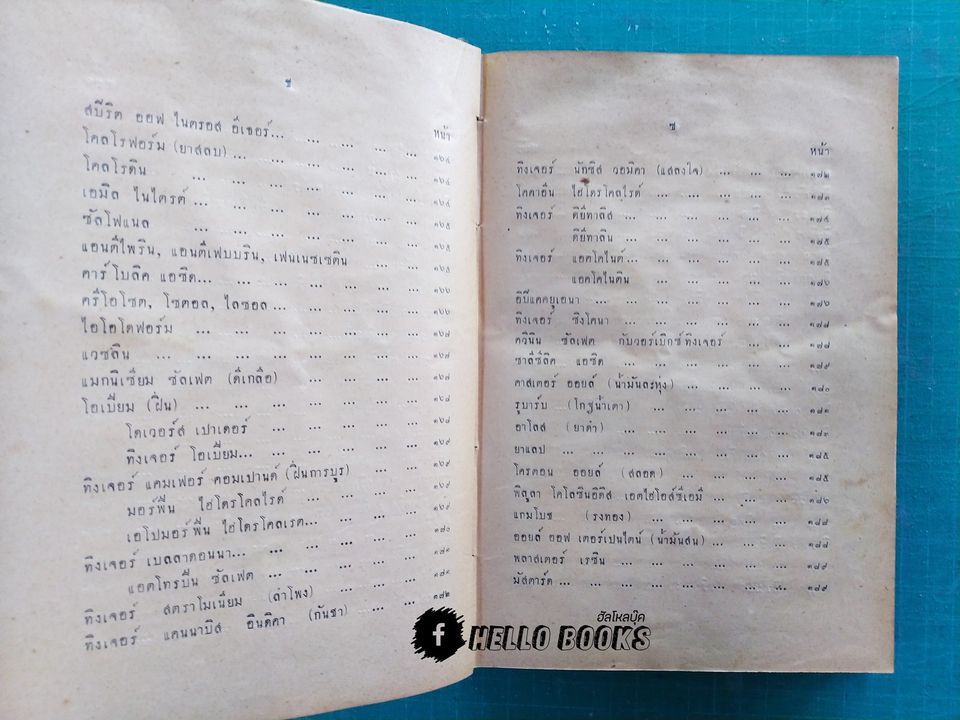 ช
หน้า
สปีริต ออฟ ไนตรอส อีเธอร์... ... ... ... ๑๖๔
โคลโรฟอร์ม (ยาสลบ) ... ... ... ... ... ๑๖๔
โคลโรดิน ... ... ... ... ... ... ๑๖๔
เอมิล ไนไตรต์ ... ... ... ... ... ... ๑๖๕
ซัลโฟแนล ... ... ... ... ... ... ๑๖๕
แอนตี้ไพริน, แอนตี้เฟบบริน, เฟนเนซเซติน ... ... ๑๖๕
คาร์โบลิค แอซิด... ... ... ... ... ... ๑๖๖
ครีโอโซต, โซตอล, ไลซอล... ... ... ... ๑๖๖
ไอโอโดฟอร์ม ... ... ... ... ... ... ๑๖๗
แวซลิน ... ... ... ... ... ... ... ๑๖๗
แมกนีเซี่ยม ซัลเฟต (ดีเกลือ) ... ... ... ... ๑๖๘
โอเบี่ยม (ฝิ่น) ... ... ... ... ... ... ๑๖๘
โดเวอร์ส เปาเดอร์ ... ... ... ... ... ๑๖๘
ทิงเจอร์ โอเบี่ยม... ... ... ... ... ๑๖๙
ทิงเจอร์ แคมเฟอร์ คอมเปานด์ (ฝิ่นการบูร) ... ... ๑๖๙
มอร์ฟีน ไฮโดรโคลไรด์ ... ... ... ... ๑๖๙
เอโปมอร์ฟีน ไฮโดรโคลเรต... ... ... ...
ทิงเจอร์ เบลลาดอนนา... ... ... ... ...
แอตโทรปีน ซัลเฟต ... ... ... ...
ทิงเจอร์ สตราโมเนี่ยม (ลำโพง) ... ... ...
ทิงเจอร์ แคนนาบิส อินดิคา (กันชา) ... ... ...
ซ
หน้า
ทิงเจอร์ นักซิส วอมิคา (แสลงใจ) ... ... ... ๑๗๒
โคคาอีน ไฮโดรโคลไรด์ ... ... ... ... ๑๗๓
ทิงเจอร์ ดิยิทาลิส ... ... ... ... ... ๑๗๔
ดิยิทาลิน ... ... ... ... ... ๑๗๕
ทิงเจอร์ แอคโคไนต์ ... ... ... ... ... ๑๗๕
แอคโคไนติน ... ... ... ... ... ๑๗๖
อิปีแคคยุเอนา ... ... ... ... ... ... ๑๗๖
ทิงเจอร์ ซิงโคนา ... ... ... ... ... ๑๗๘
ควินิน ซัลเฟต กับวอร์เบิกซ์ทิงเจอร์ ... ... ... ๑๗๗
ซาลี่ซี่ลิค แอซิด ... ... ... ... ... ๑๗๙
คาสเตอร์ ออยล์ (น้ำมันละหุ่ง) ... ... ... ... ๑๘๐
รูบาร์บ (โกฐน้ำเต้า) ... ... ... ... ... ๑๘๑
อาโลส (ยาดำ) ... ... ... ... ...
ยาแลป ... ... ... ... ... ... ๑๘๕
โครตอน ออยล์ (สลอด) ... ... ... ... ๑๘๕
พิลูลา โคโลซินธิดิส เอตไฮโอส์ซี่เอมี่ ... ... ... ๑๘๖
แกมโบช (รงทอง) ... ... ... ... ... ๑๘๘
ออยล์ ออฟ เตอร์เปนไตน์ (น้ำมันสน) ... ... ... ๑๘๘
พลาสเตอร์ เรซิน ... ... ... ... ... ๑๘๙
มัสตาร์ด ... ... ... ... ... ... ๑๘๙
ฮัลโหลบุ๊ค
f HELLO BOOKS